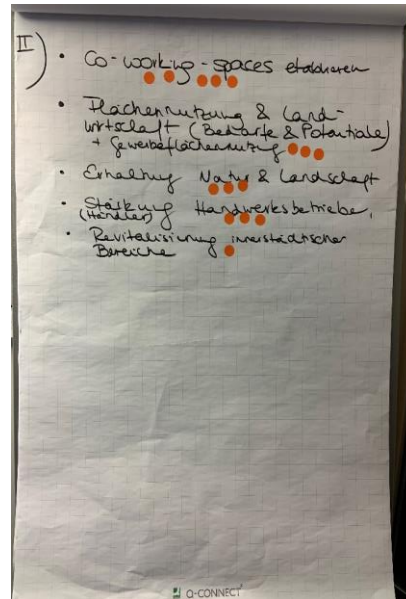 II)
• Co-working-spaces etablieren
• Flächennutzung & Land-
wirtschaft (Bedarfe & Potentiale)
+ Gewerbeflächennutzung
• Erhaltung Natur & Landschaft
• Stärkung Handwerksbetriebe,
(Händler)
• Revitalisierung innerstädtischer
Bereiche
Q-CONNECT